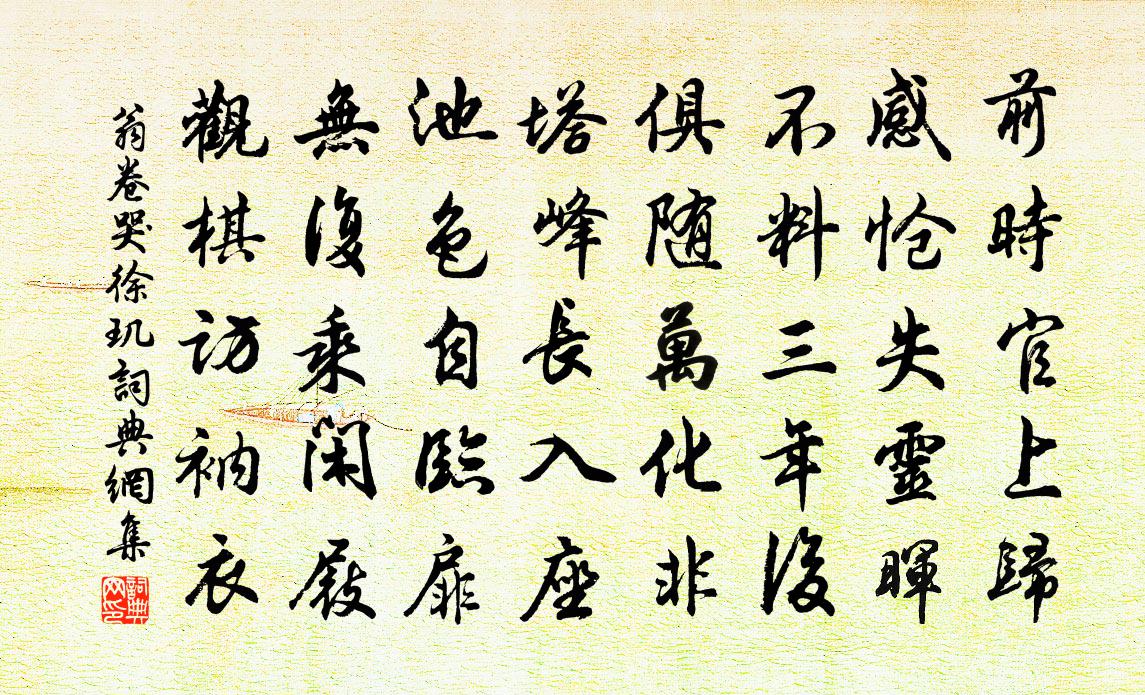 前時官上歸
感愴失靈暉
不料三年後
俱随萬化非
塔峰長入座
池色自臨扉
無復乘閑屐
觀棋訪衲衣
翁卷哭徐玑詞典網集
詞典网印